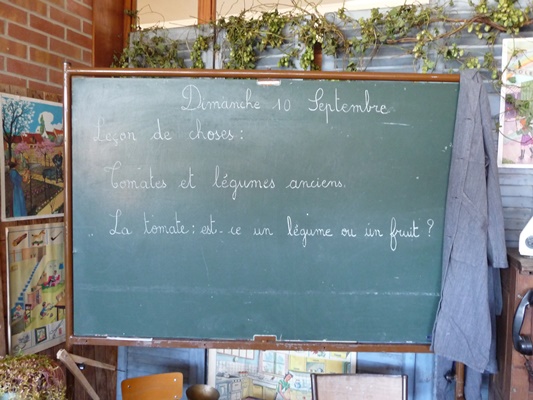 Dimanche 10 Septembre
Leçon de choses:
Tomates et légumes anciens.
La tomate: est-ce un légume ou un fruit?